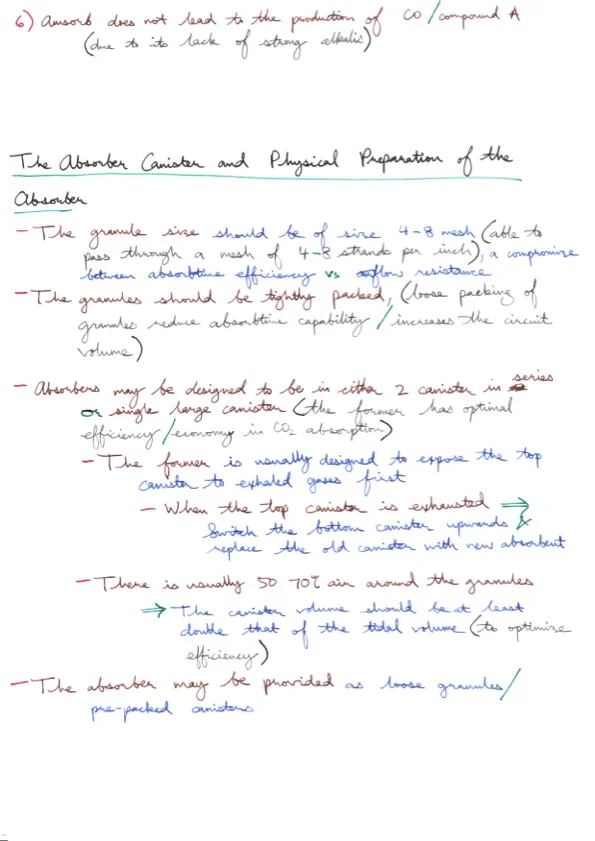 6) Amsorb does not lead to the production of CO/compound A
(due to its lack of strong alkalis)
The Absorber Canister and Physical Preparation of the
Absorber
- The granule size should be of size 4-8 mesh (able to
pass through a mesh of 4-8 strands per inch), a compromise
between absorbtive efficiency vs airflow resistance
- The granules should be tightly packed, (loose packing of
granules reduce absorbtive capability/increases the circuit
volume)
- Absorbers may be designed to be in either 2 canister in series
or single large canister (the former has optimal
efficiency/economy in CO2 absorption)
- The former is usually designed to expose the top
canister to exhaled gases first
- When the top canister is exhausted ⇒
Switch the bottom canister upwards &
replace the old canister with new absorbent
- There is usually 50 70% air around the granules
⇒ The canister volume should be at least
double that of the tidal volume (to optimize
efficiency)
- The absorber may be provided as loose granules/
pre-packed canisters